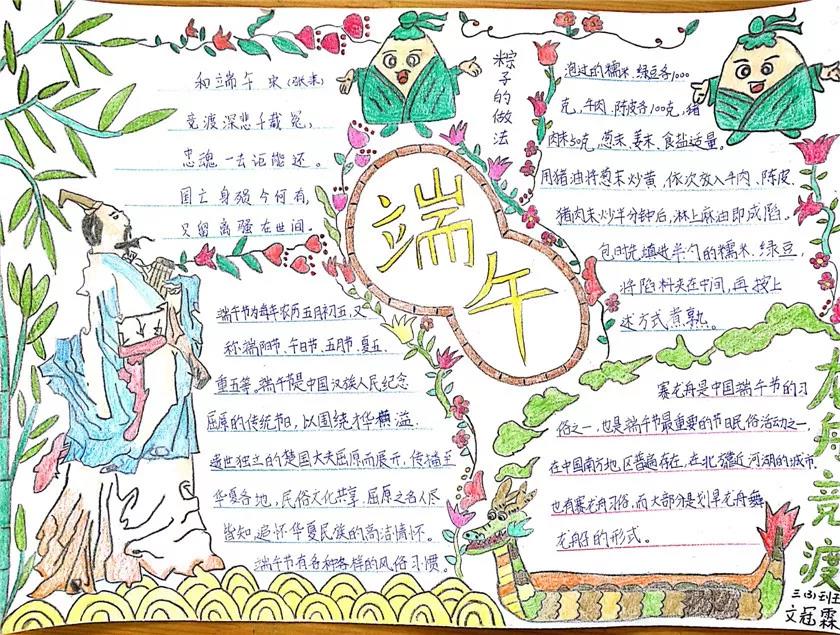 和端午 宋(张耒)
竞渡深悲千载冤,
忠魂一去讵能还。
国亡身殒今何有,
只留离骚在世间。
端午节为每年农历五月初五,又
称端阳节、午日节、五月节、夏五、
重五等。端午节是中国汉族人民纪念
屈原的传统节日,以围绕才华横溢、
遗世独立的楚国大夫屈原而展开,传播至
华夏各地,民俗文化共享,屈原之名人尽
皆知,追怀华夏民族的高洁情怀。
端午节有各种各样的风俗习惯。
端午
粽子的做法
泡过的糯米、绿豆各1000
克,牛肉、陈皮各100克,猪
肉末50克,葱末、姜末、食盐适量。
用猪油将葱末炒黄,依次放入牛肉、陈皮、
猪肉末炒半分钟后,淋上麻油即成馅。
包时先填进半勺的糯米、绿豆,
将馅料夹在中间,再按上
述方式煮熟。
赛龙舟是中国端午节的习
俗之一,也是端午节最重要的节日民俗活动之一,
在中国南方地区普遍存在,在北方靠近河湖的城市
也有赛龙舟习俗,而大部分是划旱龙舟舞
龙船的形式。
龙舟竞渡
三(3)班
文冠霖